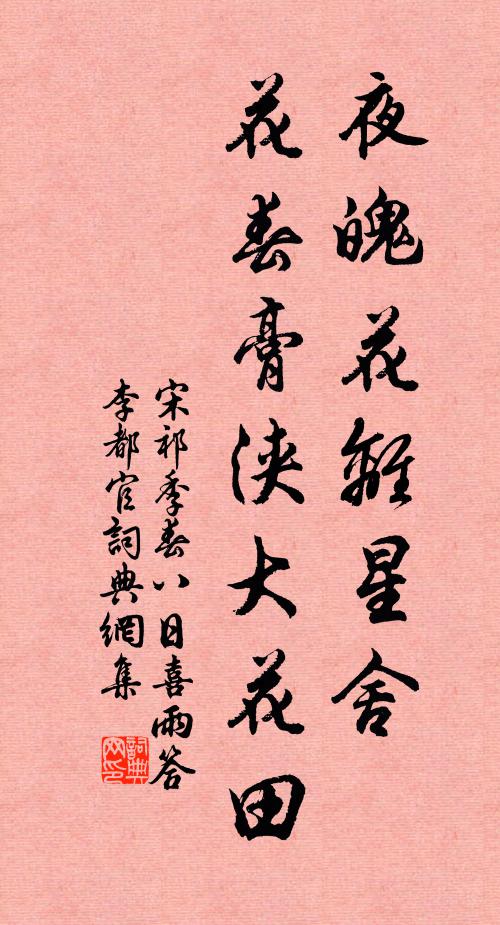 夜魄花離星舍
花春膏浹大花田
宋祁季春八日喜雨答
李都官詞典網集
詞典网印